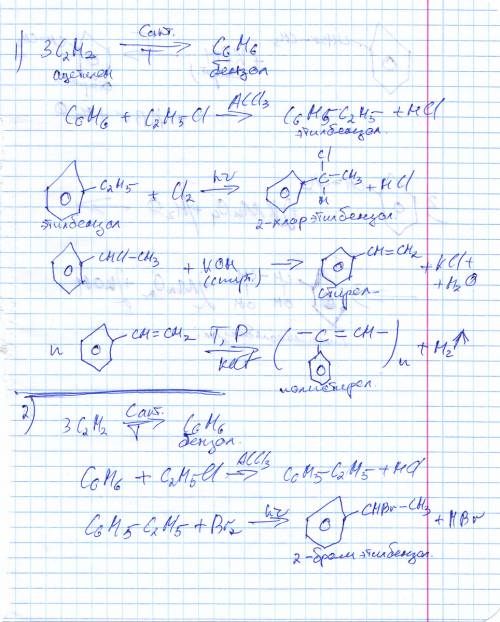 1) 3C2H2 —Cакт. T→ C6H6
ацетилен бензол
C6H6 + C2H5Cl —AlCl3→ C6H5-C2H5 + HCl
этилбензол
C2H5 + Cl2 —hν→ Cl -C-CH3 H + HCl
этилбензол 2-хлорэтилбензол
CHCl-CH3 + KOH (спирт.) → CH=CH2 + KCl + + H2O
стирол
n CH=CH2 —T, P кат→ (-C=CH-)n + H2↑
полистирол
2) 3C2H2 —Cакт. T→ C6H6
бензол.
C6H6 + C2H5Cl —AlCl3→ C6H5-C2H5 + HCl
C6H5-C2H5 + Br2 —hν→ CHBr-CH3 + HBr
2-бромэтилбензол.